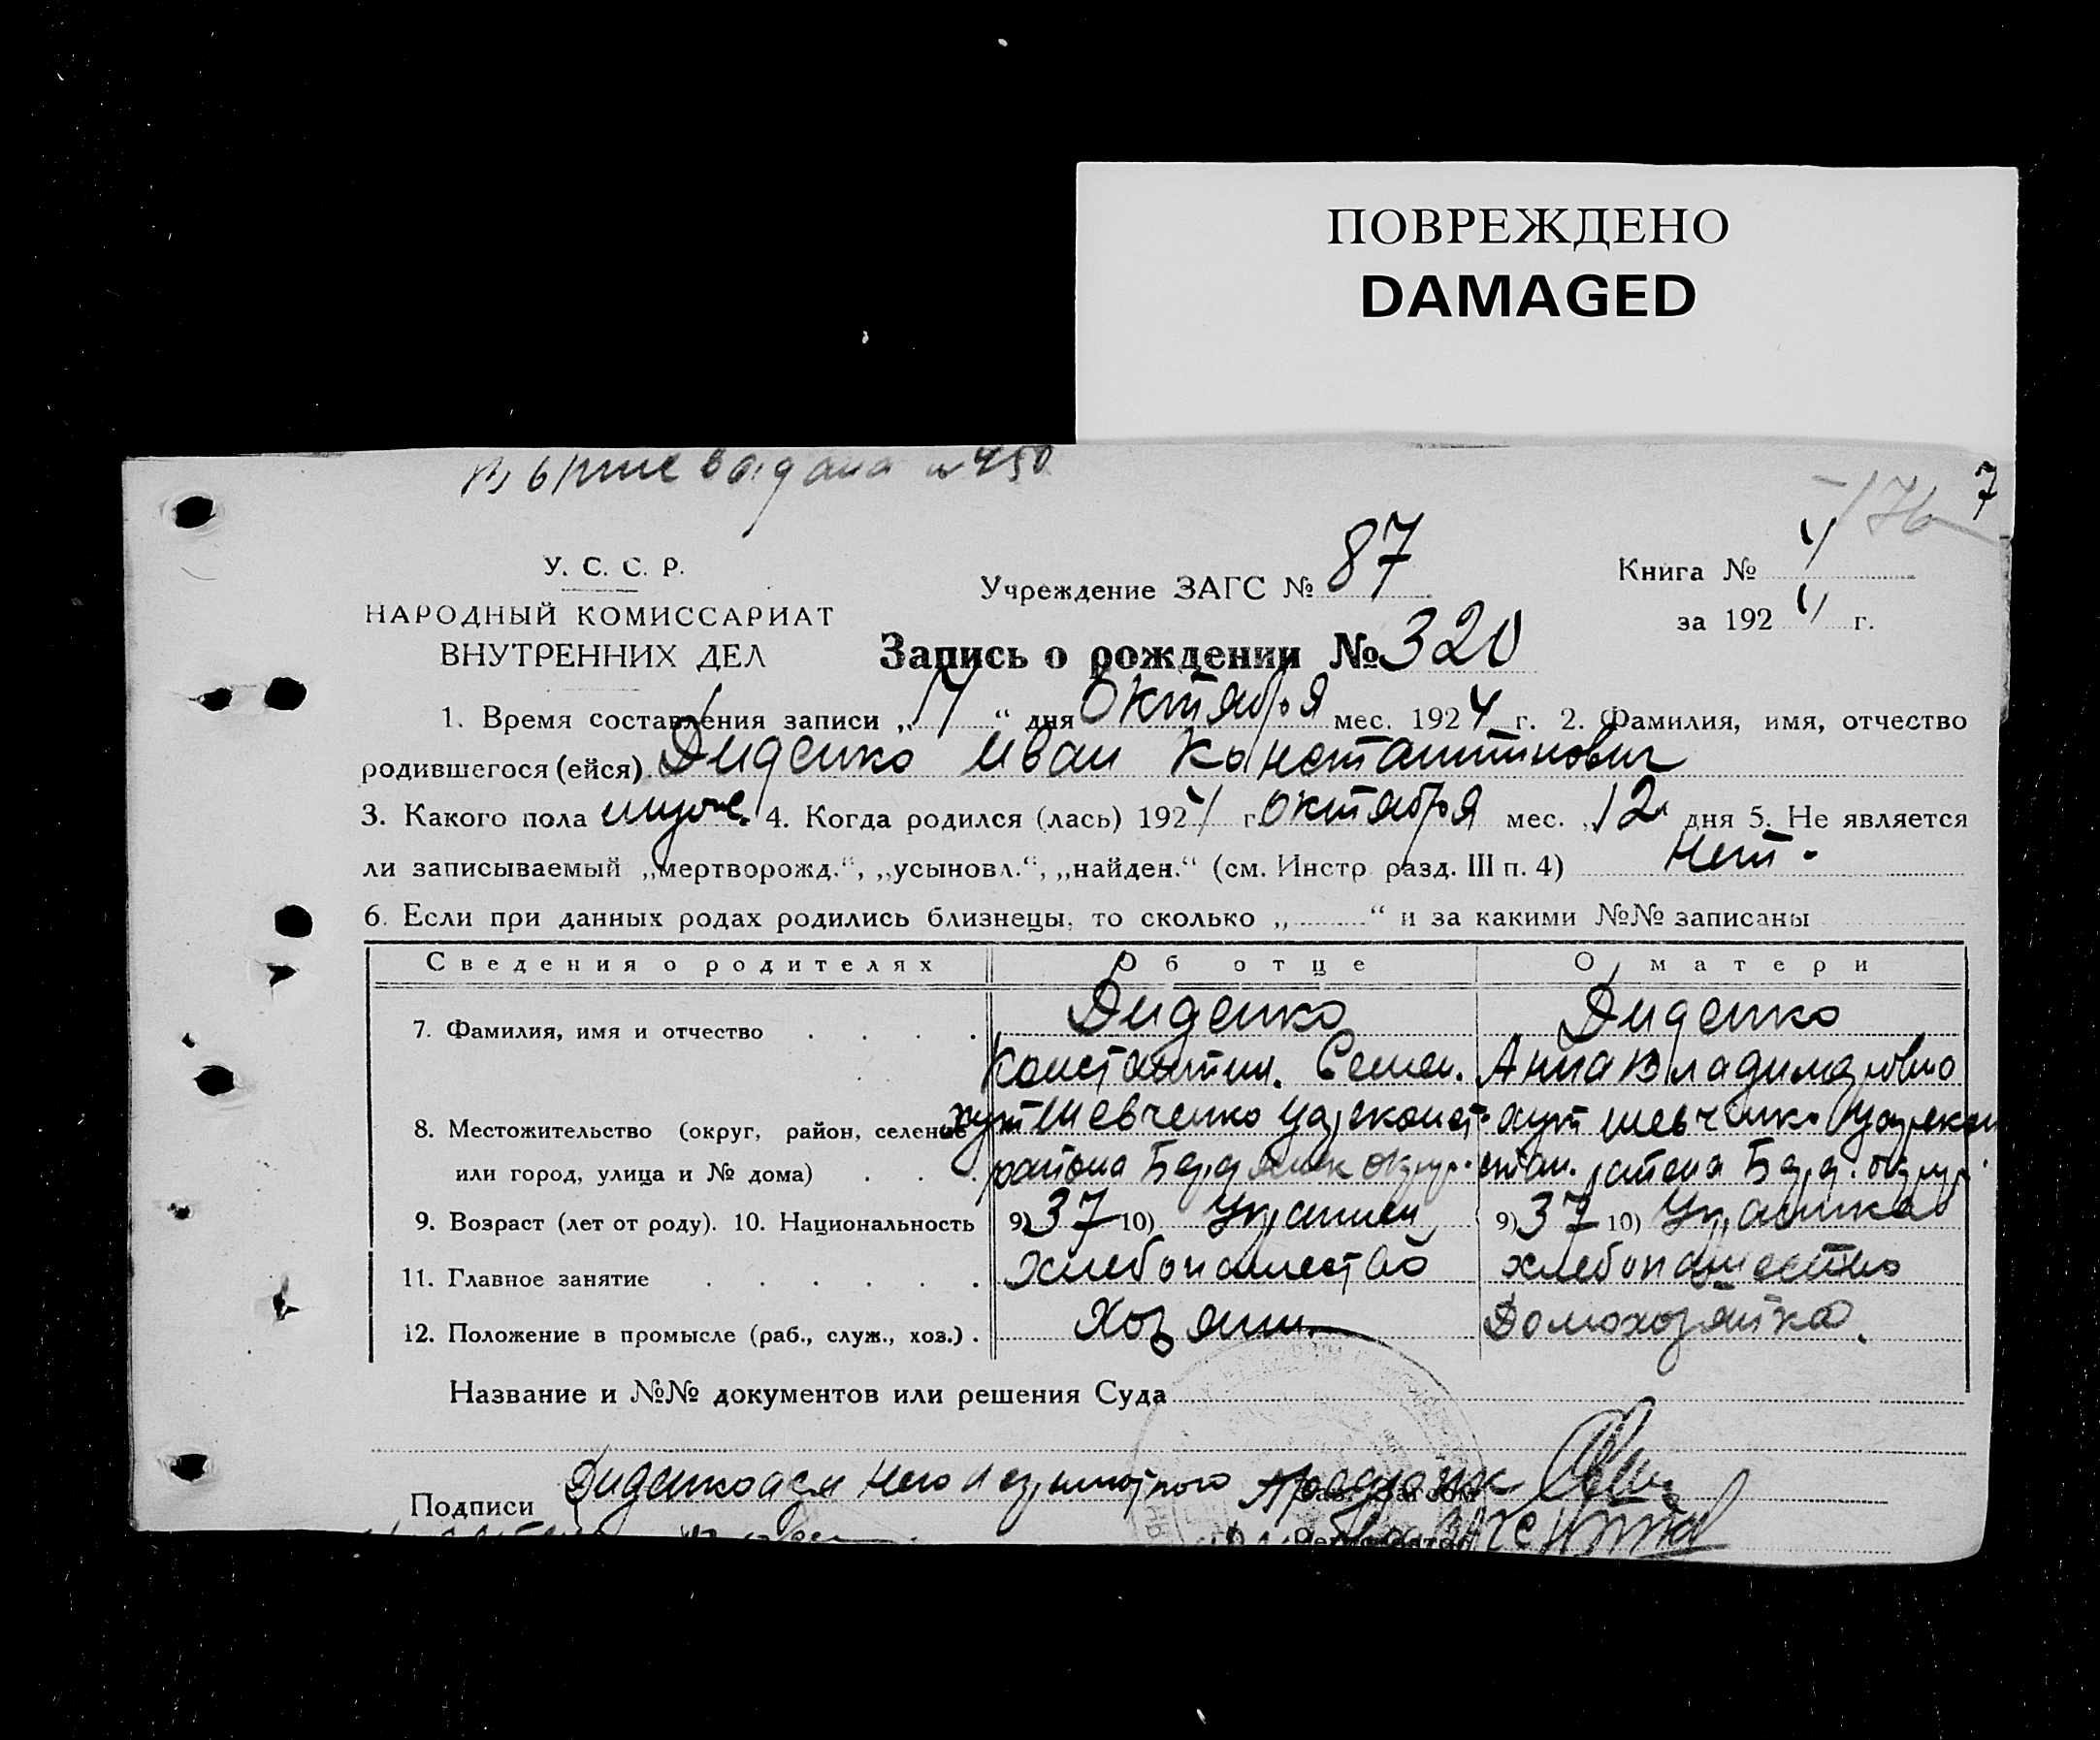 ПОВРЕЖДЕНО
DAMAGED
выдана №450
176 7
У. С. С. Р.
НАРОДНЫЙ КОМИССАРИАТ
ВНУТРЕННИХ ДЕЛ
Учреждение ЗАГС № 87
Книга № 4
за 1924 г.
Запись о рождении № 320
1. Время составления записи „14“ дня Октября мес. 1924 г. 2. Фамилия, имя, отчество
родившегося (ейся) Диденко Иван Константинович
3. Какого пола муже. 4. Когда родился (лась) 1924 г. Октября мес. 12 дня 5. Не является
ли записываемый „мертворожд.“, „усыновл.“, „найден.“ (см. Инстр. разд. III п. 4) Нет.
6. Если при данных родах родились близнецы, то сколько „ “ и за какими №№ записаны
Сведения о родителях Об отце О матери
7. Фамилия, имя и отчество Диденко Диденко
Константин. Семен. Анна Владимировна
8. Местожительство (округ, район, селение хут Шевченко Цареконст. хут Шевченко Царекон
или город, улица и № дома) района Бердянск округ. стан. района Берд. округ.
9. Возраст (лет от роду). 10. Национальность 9) 37 10) Украинец 9) 37 10) Украинка
11. Главное занятие Хлебопашество хлебопашество
12. Положение в промысле (раб., служ., хоз.) Хозяин. Домохозяйка.
Название и №№ документов или решения Суда
Подписи Диденко а за него неграмотного